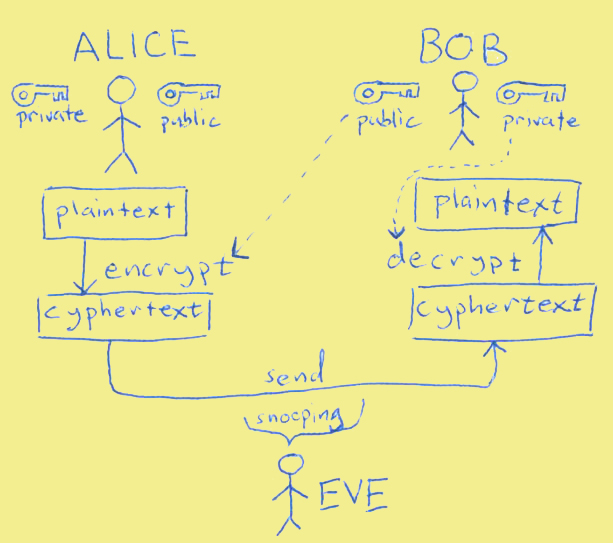 ALICE BOB
private public public private
plaintext plaintext
encrypt decrypt
cyphertext cyphertext
send
snooping
EVE